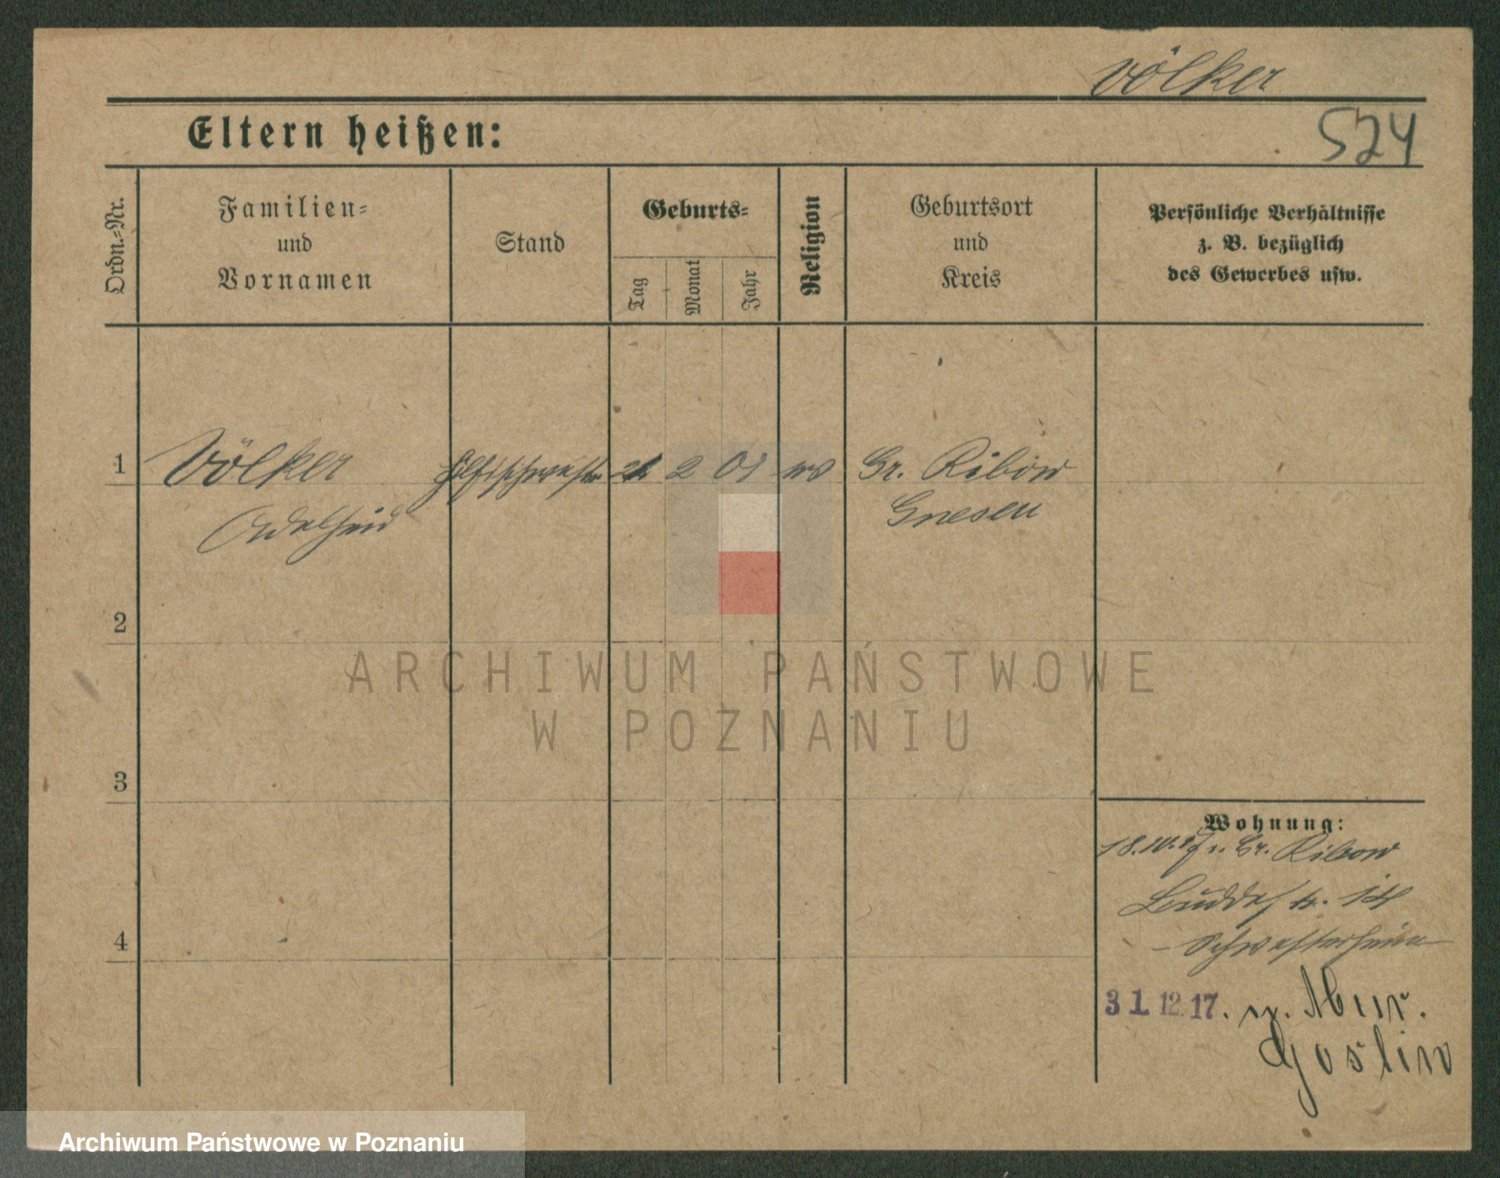 Völker
524
Eltern heißen:
Ordn.-Nr.
Familien-
und
Vornamen
Stand
Geburts-
Tag
Monat
Jahr
Religion
Geburtsort
und
Kreis
Persönliche Verhältnisse
z. B. bezüglich
des Gewerbes usw.
1 Völker Hilfsschwester 2 01 Gr. Ribow
Adelheid Gnesen
2
3
4
Wohnung:
18.10.17 v. Gr. Ribow
Buddestr. 14
Schwesternheim
31.12.17. n. Mur.
Goslin
ARCHIWUM PAŃSTWOWE
W POZNANIU
Archiwum Państwowe w Poznaniu